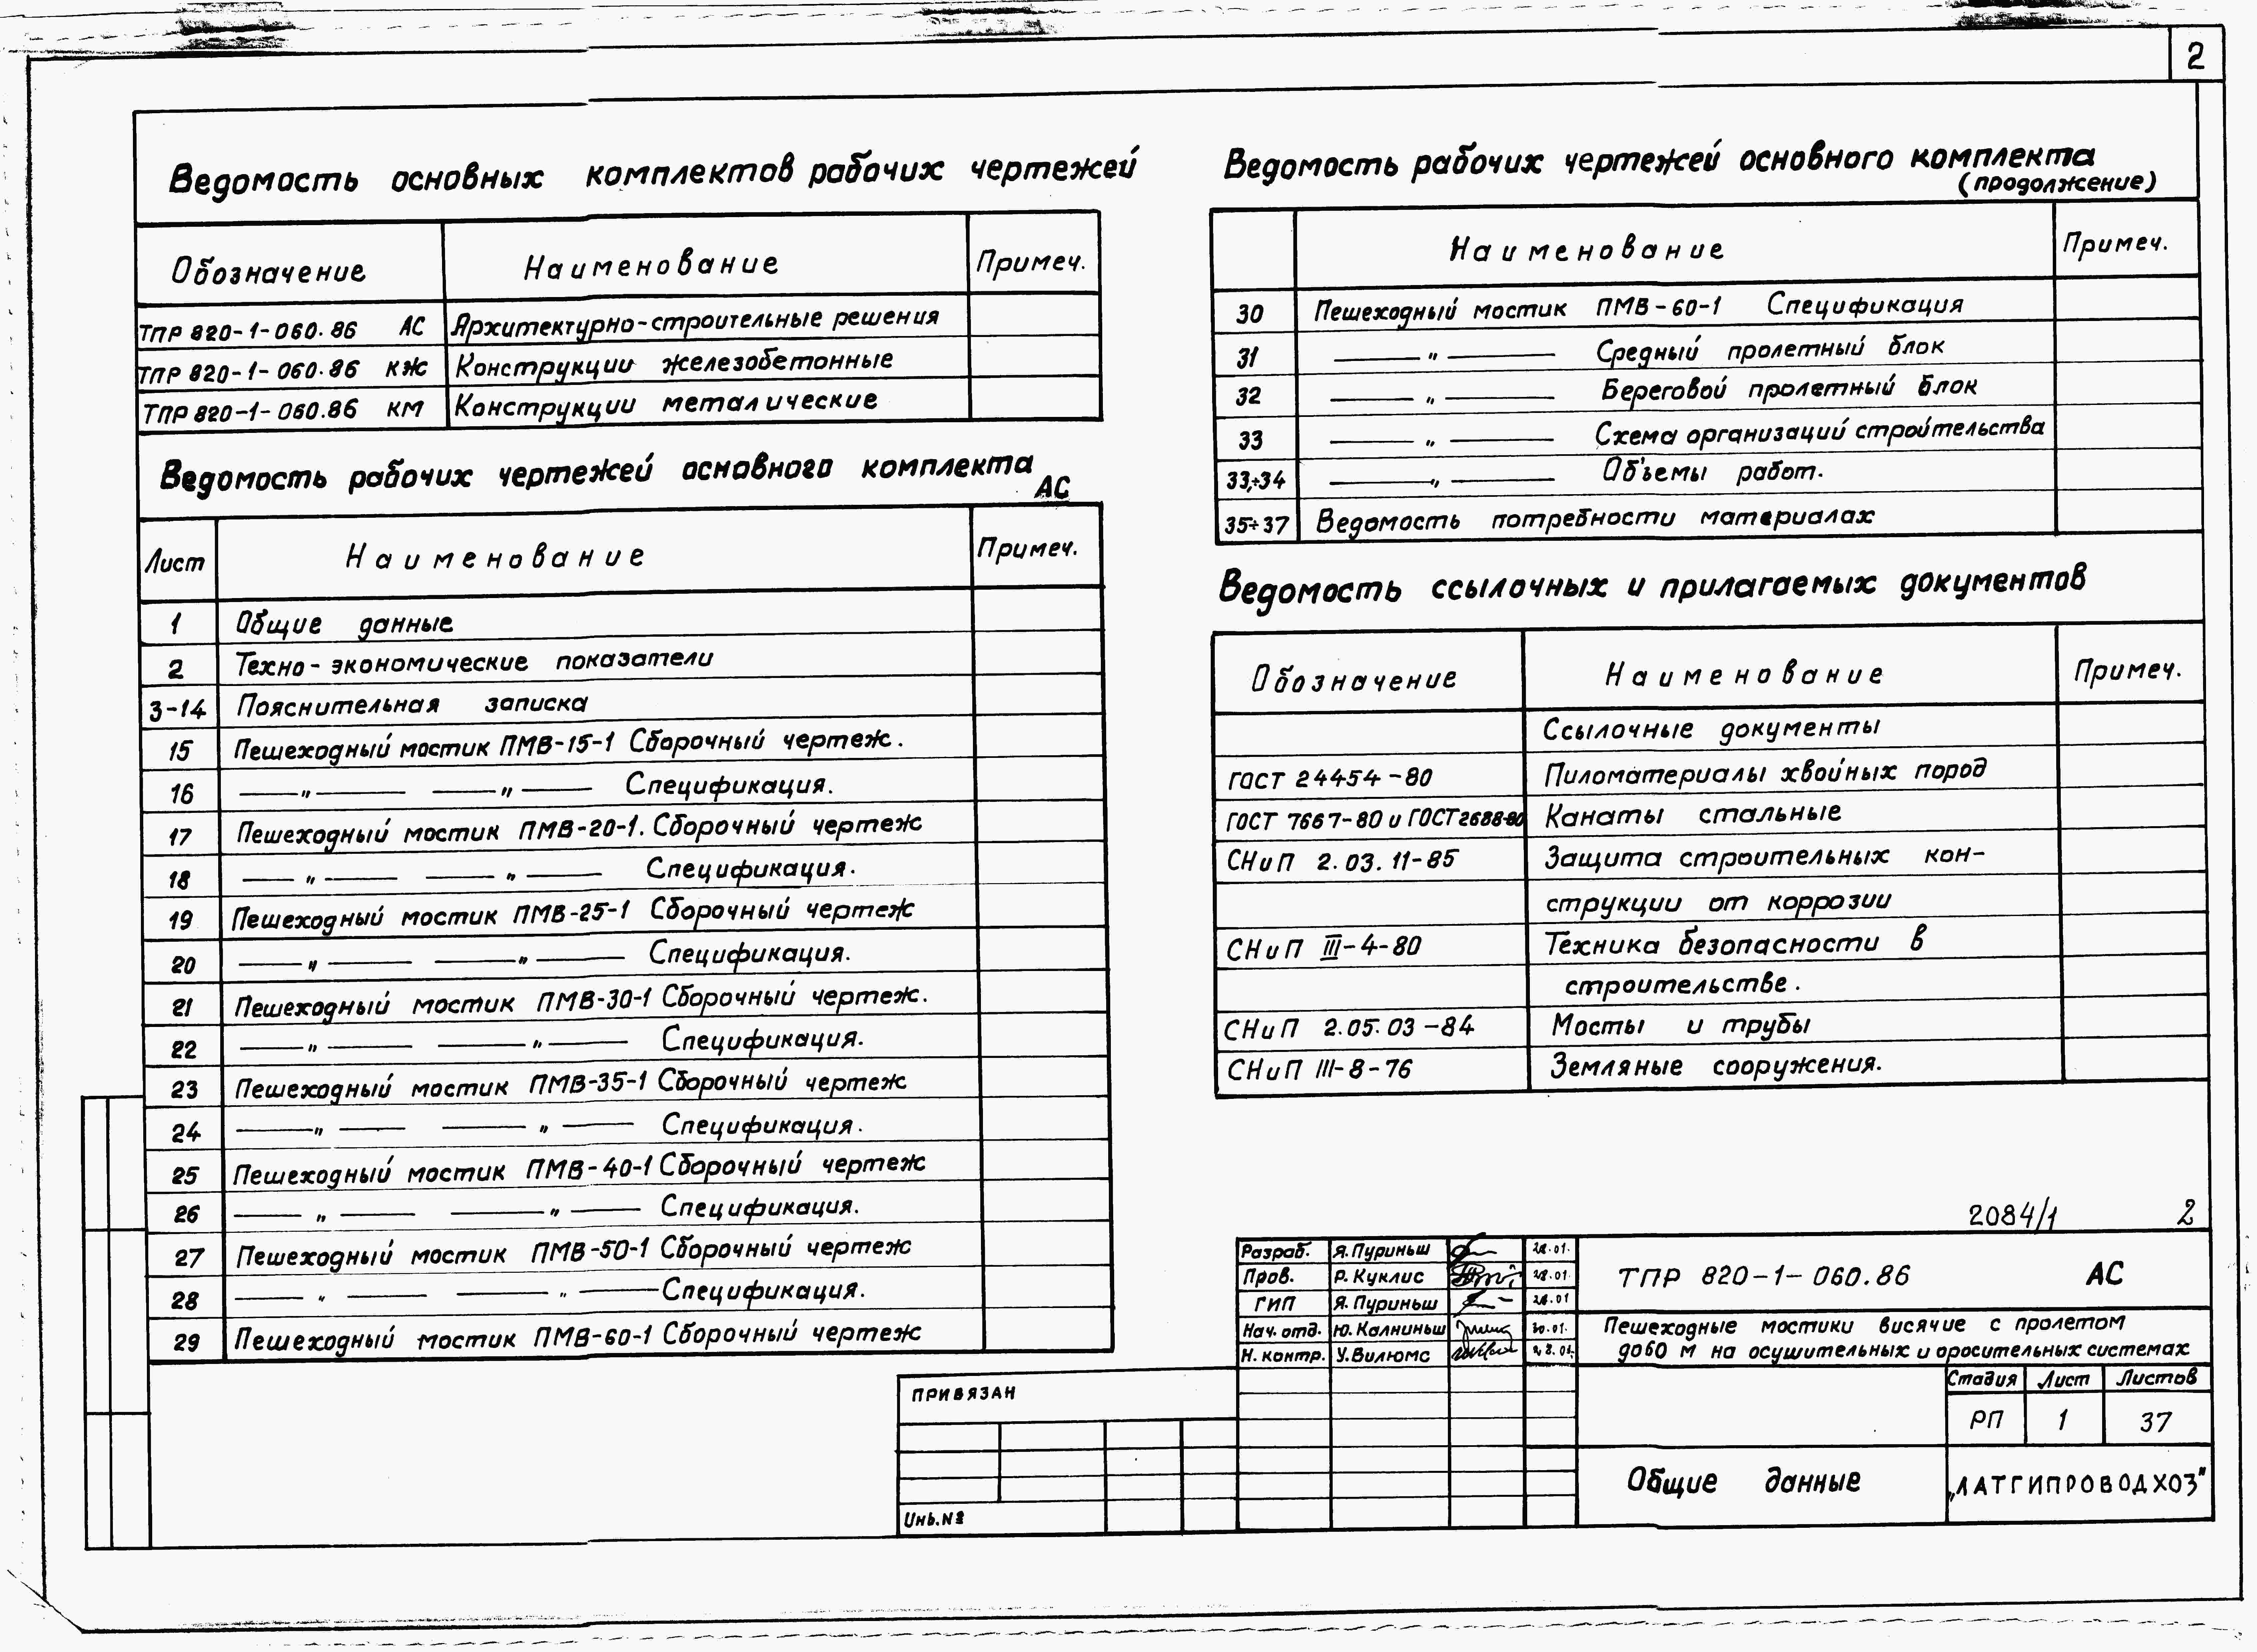 2
Ведомость основных комплектов рабочих чертежей
Обозначение Наименование Примеч.
ТПР 820-1-060.86 АС Архитектурно-строительные решения
ТПР 820-1-060.86 КЖ Конструкции железобетонные
ТПР 820-1-060.86 КМ Конструкции металические
Ведомость рабочих чертежей основного комплекта
АС
Лист Наименование Примеч.
1 Общие данные
2 Техно-экономические показатели
3-14 Пояснительная записка
15 Пешеходный мостик ПМВ-15-1 Сборочный чертеж.
16 —„— —„— Спецификация.
17 Пешеходный мостик ПМВ-20-1. Сборочный чертеж
18 —„— —„— Спецификация.
19 Пешеходный мостик ПМВ-25-1 Сборочный чертеж
20 —„— —„— Спецификация.
21 Пешеходный мостик ПМВ-30-1 Сборочный чертеж.
22 —„— —„— Спецификация.
23 Пешеходный мостик ПМВ-35-1 Сборочный чертеж
24 —„— —„— Спецификация.
25 Пешеходный мостик ПМВ-40-1 Сборочный чертеж
26 —„— —„— Спецификация.
27 Пешеходный мостик ПМВ-50-1 Сборочный чертеж
28 —„— —„— Спецификация.
29 Пешеходный мостик ПМВ-60-1 Сборочный чертеж
Ведомость рабочих чертежей основного комплекта
(продолжение)
Наименование Примеч.
30 Пешеходный мостик ПМВ-60-1 Спецификация
31 —„— Средный пролетный блок
32 —„— Береговой пролетный блок
33 —„— Схема организаций строительства
33,÷34 —„— Объемы работ.
35÷37 Ведомость потребности материалах
Ведомость ссылочных и прилагаемых документов
Обозначение Наименование Примеч.
Ссылочные документы
ГОСТ 24454-80 Пиломатериалы хвойных пород
ГОСТ 7667-80 и ГОСТ 2688-80 Канаты стальные
СНиП 2.03.11-85 Защита строительных кон-
струкции от коррозии
СНиП III-4-80 Техника безопасности в
строительстве.
СНиП 2.05.03-84 Мосты и трубы
СНиП III-8-76 Земляные сооружения.
2084/1 2
Разраб. Я.Пуриньш 28.01.
Пров. Р.Куклис 28.01.
ГИП Я.Пуриньш 28.01
Нач. отд. Ю.Калниньш 30.01.
Н. контр. У.Вилюмс 28.01.
ТПР 820-1-060.86 АС
Пешеходные мостики висячие с пролетом
до 60 м на осушительных и оросительных системах
Стадия Лист Листов
РП 1 37
Общие данные
„ЛАТГИПРОВОДХОЗ"
ПРИВЯЗАН
Инв.№